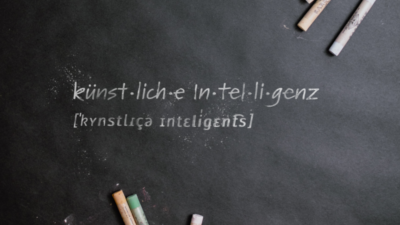 künst·lich·e In·tel·li·genz
[ˈkʏnstlɪçə ɪntɛliɡɛnts]